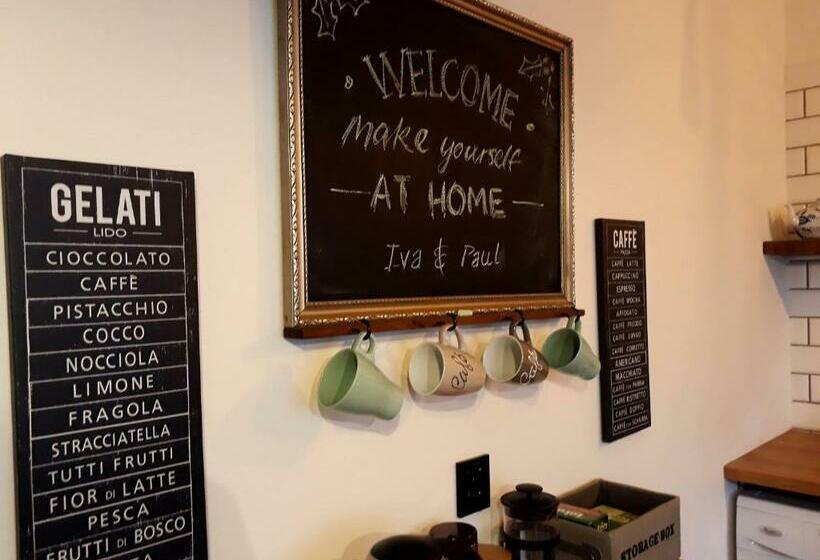 GELATI
LIDO
CIOCCOLATO
CAFFÈ
PISTACCHIO
COCCO
NOCCIOLA
LIMONE
FRAGOLA
STRACCIATELLA
TUTTI FRUTTI
FIOR DI LATTE
PESCA
FRUTTI DI BOSCO
WELCOME
make yourself
AT HOME
Iva & Paul
Café
Café
CAFFÈ
CAFFÈ LATTE
CAPPUCCINO
ESPRESSO
CAFFÈ MOCHA
AFFOGATO
CAFFÈ FREDDO
CAFFÈ LUNGO
CAFFÈ CORRETTO
AMERICANO
MACCHIATO
CAFFÈ CON PANNA
CAFFÈ RISTRETTO
CAFFÈ DOPPIO
CAFFÈ CON SCHIUMA
STORAGE BOX